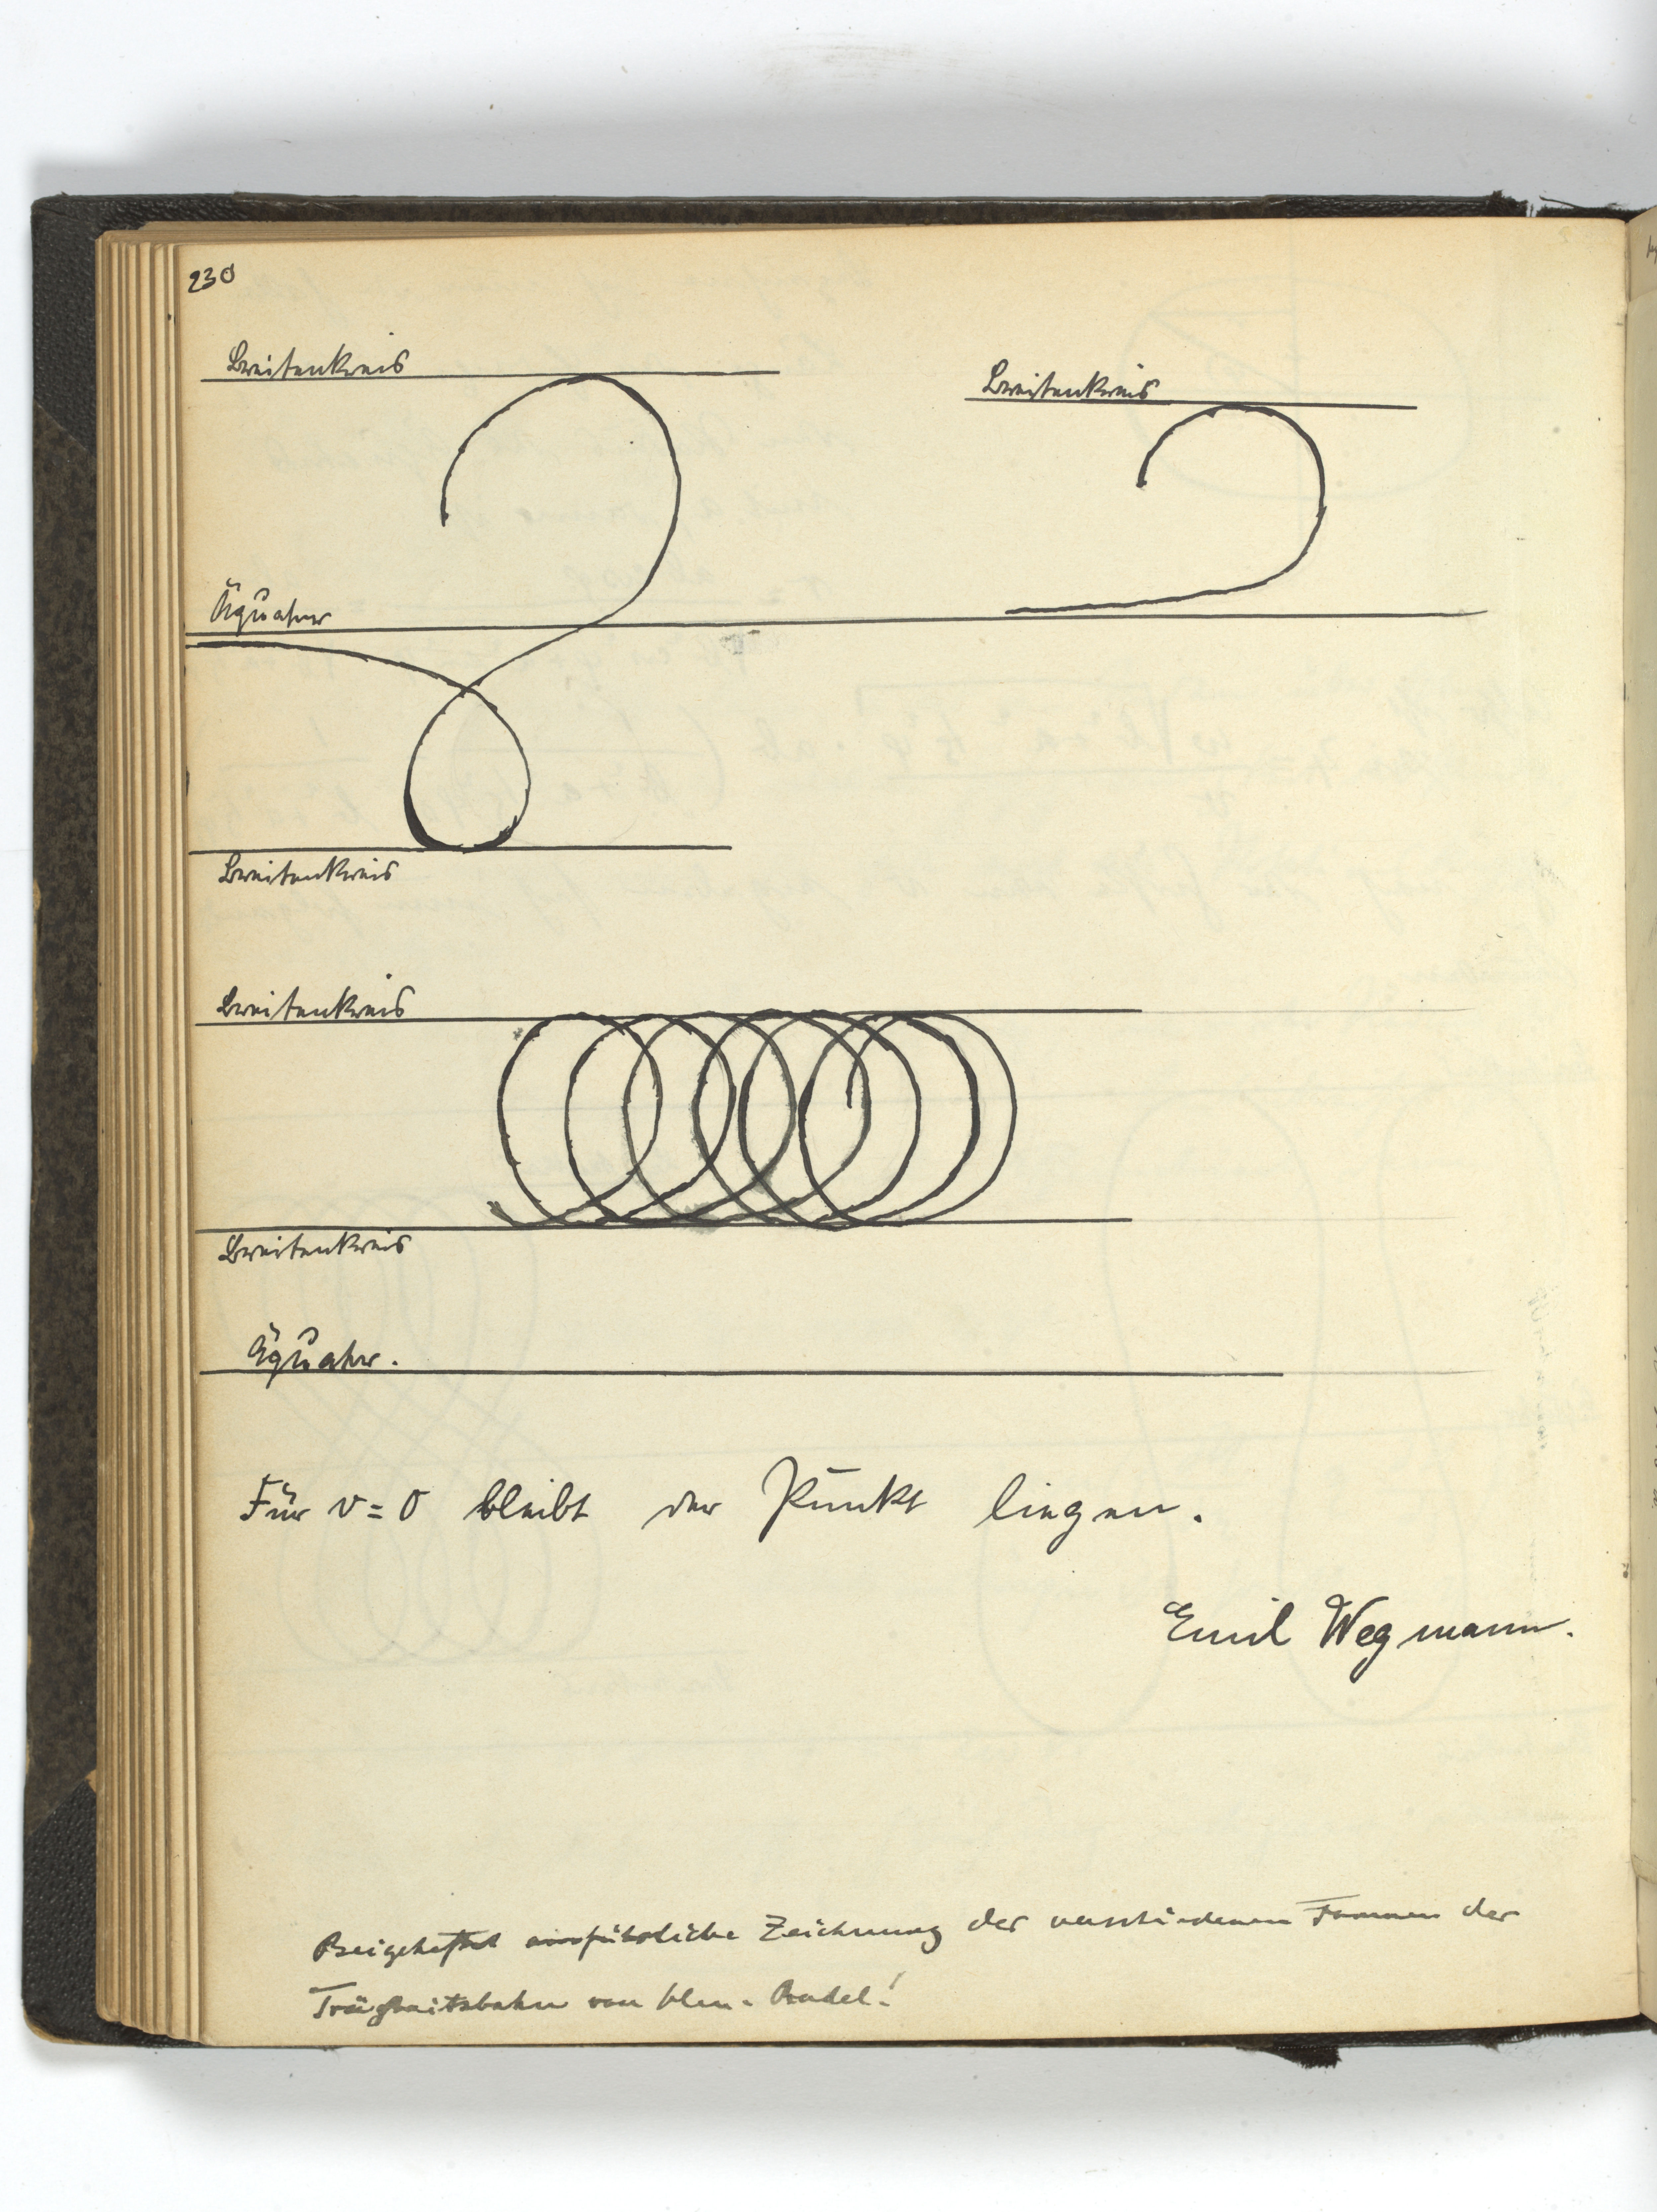 230
Breitenkreis
Breitenkreis
Äquator
Breitenkreis
Breitenkreis
Breitenkreis
Äquator.
Für v = 0 bleibt der Punkt liegen.
Emil Wegmann.
Beigeheftet ausführliche Zeichnung der verschiedenen Formen der
Trägheitsbahn von